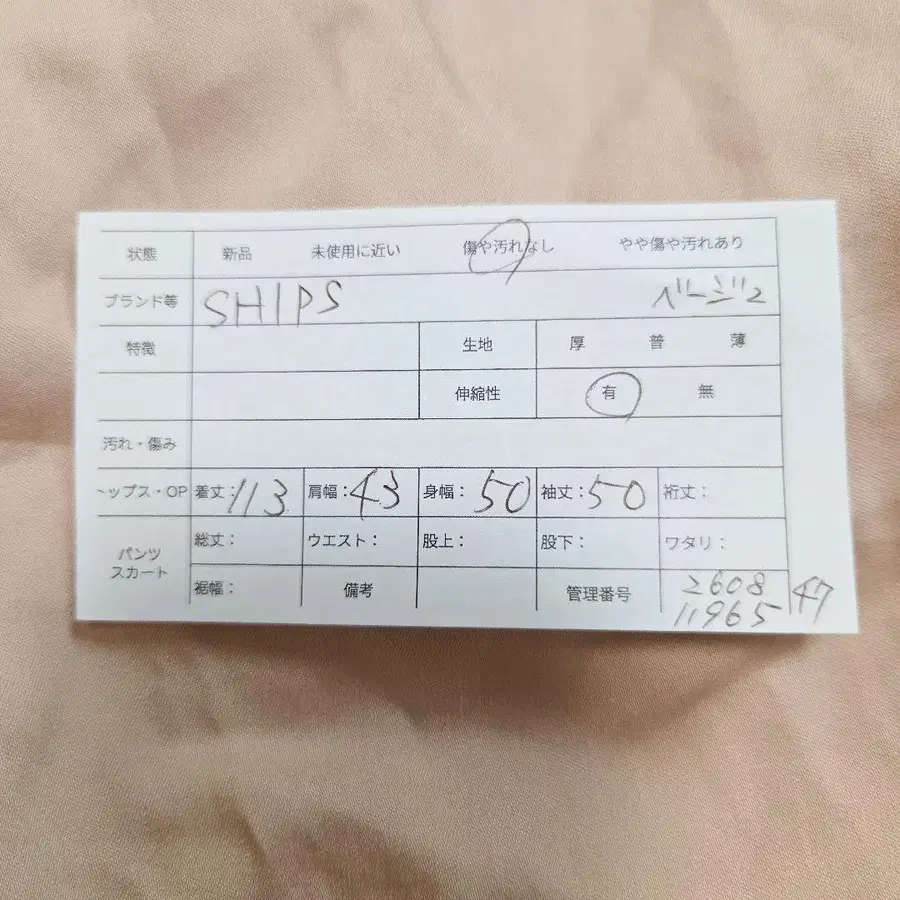 状態 新品 未使用に近い 傷や汚れなし やや傷や汚れあり
ブランド等 SHIPS ベージュ
特徴 生地 厚 普 薄
伸縮性 有 無
汚れ・傷み
トップス・OP 着丈：113 肩幅：43 身幅：50 袖丈：50 裄丈：
パンツ スカート 総丈： ウエスト： 股上： 股下： ワタリ：
裾幅： 備考 管理番号 2608 47
11965